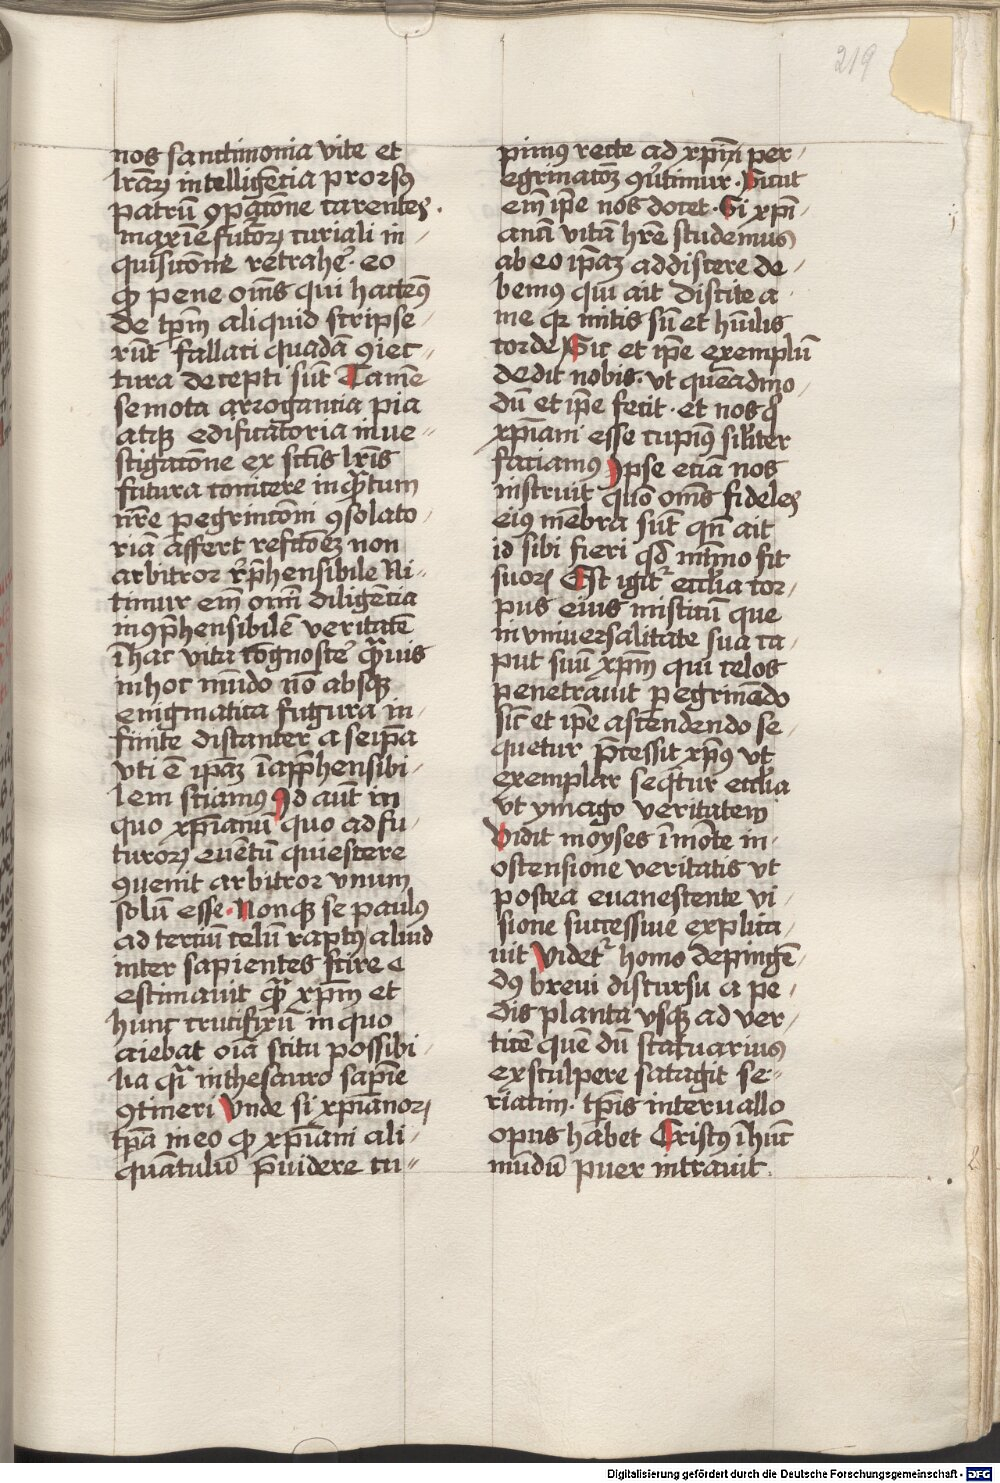 219
nos sanctimonia vite et
lrãrꝝ intelligẽcia prorsꝰ
patrũ ꝯꝑatõne carentes.
maxĩe futorꝝ curiali in⸗
quisicõne retrahe᷑. eo
ꝙ pene om̃s qui hactenꝰ
de tp̃m aliquid scripse⸗
rũt fallaci quadã ꝯiec⸗
tura decepti sũt Tamẽ
semota arrogantia pia
atqꝫ edificatoria inue⸗
stigatõne ex sctĩs lrĩs
futura conicere inqᷓtum
nr̃e peg̃rinacõni ꝯsolato⸗
riã affert refcõeꝫ non
arbitror rep̃hensibile Ni⸗
timur em̃ omĩ diligẽcia
incõp̃hensibilẽ veritatẽ
ĩ hac vita cognosce᷑ qᷓuis
inhoc mũdo nõ absqꝫ
enigmatica fugura in⸗
finite distanter a seip̃a
vti ẽ ip̃aꝫ ĩapp̃hensibi⸗
lem sciamꝰ Id aũt in
quo xp̃ianũ quo ad fu⸗
turorꝝ euẽtũ quiescere
ꝯuenit arbitror vnum
solũ esse. Nonqꝫ se paulus
ad terciũ celũ raptꝰ aliud
inter sapientes scire e
estimauit qᷓ xp̃m et
hunc crucifixũ in quo
aiebat oĩa scitu possibi⸗
lia qᷓ inthesauro sapiẽ
ꝯtineri Vnde si xp̃ianorꝝ
tp̃a in eo ꝙ xp̃iani ali⸗
quãtulũ p̃uidere cu⸗
pimꝰ recte ad xp̃m per⸗
egrinatoꝫ ꝯũtimur. Sicut
em̃ ip̃e nos docet. Si xp̃i⸗
anã vitã hr̃e studemus
ab eo ip̃aꝫ addiscere de⸗
bemꝰ qui ait discite a
me qꝛ mitis sũ et hũilis
corde Sic et ip̃e exemplũ
dedit nobis. vt quẽadmo⸗
dũ et ip̃e fecit. et nos qͥ
xp̃iani esse cupimꝰ silr̃iter
faciamꝰ Ipse eciã nos
instruit quõ om̃s fideles
eiꝰ mẽbra sũt qñ ait
id sibi fieri qď mĩmo fit
suorꝝ Est igit᷑ ecclĩa cor⸗
pus eius misticũ que
in vniuersalitate sua ca⸗
put suũ xp̃m qui celos
penetrauit peg̃rinãdo
sic̃ et ip̃e ascendendo se⸗
quetur P̃cessit xp̃us vt
exemplar seqͥtur ecclĩa
vt ymago veritatem
Vidit moyses ĩ mõte in
ostensione veritatis vt
postea euanescente vi⸗
sione successiue explica⸗
uit Videt᷑ homo depingẽ⸗
dꝰ breui discursu a pe⸗
dis planta vsqꝫ ad ver⸗
ticẽ quẽ dũ statuarius
exsculpere satagit se⸗
riatim. tp̃is interuallo
opus habet Cristꝰ ĩ hũc
mũdũ puer intrauit.
Digitalisierung gefördert durch die Deutsche Forschungsgemeinschaft - DFG